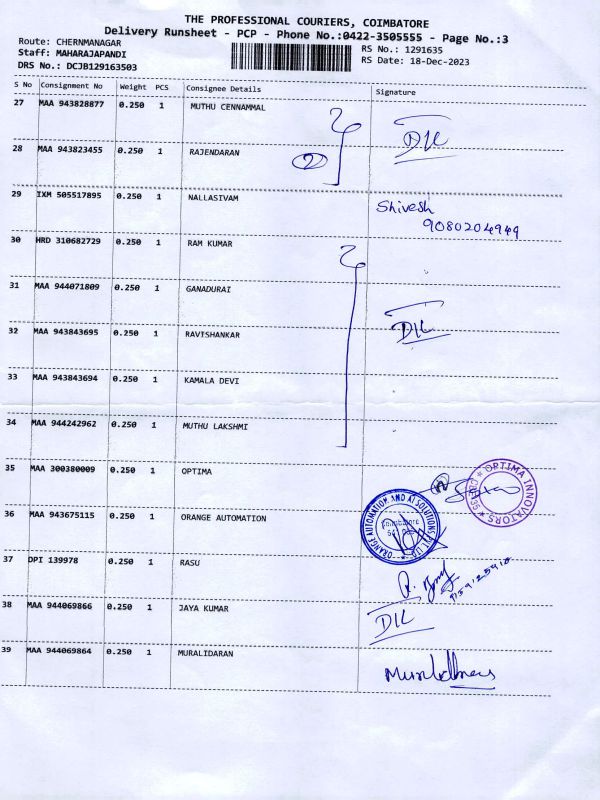 THE PROFESSIONAL COURIERS, COIMBATORE
Delivery Runsheet - PCP - Phone No.:0422-3505555 - Page No.:3
Route: CHERNMANAGAR
Staff: MAHARAJAPANDI
DRS No.: DCJB129163503
RS No.: 1291635
RS Date: 18-Dec-2023
S No Consignment No Weight PCS Consignee Details Signature
27 MAA 943828877 0.250 1 MUTHU CENNAMMAL
DK
28 MAA 943823455 0.250 1 RAJENDARAN
2
29 IXM 505517895 0.250 1 NALLASIVAM
Shivesh
9080204949
30 HRD 310682729 0.250 1 RAM KUMAR
31 MAA 944071809 0.250 1 GANADURAI
32 MAA 943843695 0.250 1 RAVISHANKAR
DK
33 MAA 943843694 0.250 1 KAMALA DEVI
34 MAA 944242962 0.250 1 MUTHU LAKSHMI
35 MAA 300380009 0.250 1 OPTIMA
OPTIMA INNOVATORS
36 MAA 943675115 0.250 1 ORANGE AUTOMATION
ORANGE AUTOMATION AND AI SOLUTIONS PVT. LTD
Coimbatore
37 DPI 139978 0.250 1 RASU
38 MAA 944069866 0.250 1 JAYA KUMAR
DK
39 MAA 944069864 0.250 1 MURALIDARAN